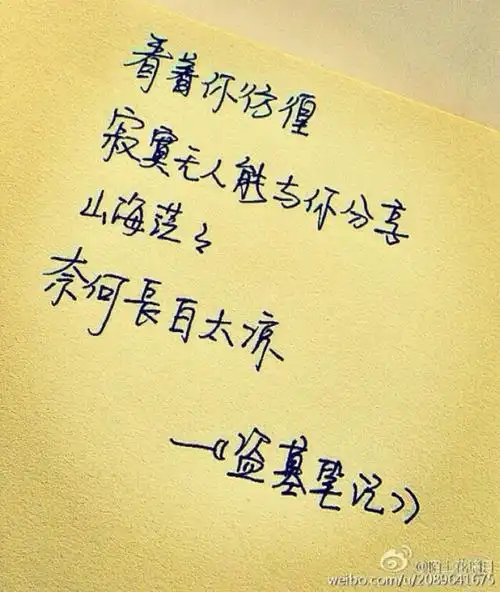 看着你彷徨
寂寞无人能与你分享
山海茫々
奈何長白太凉
—《盗墓笔记》
weibo.com/u/2089641675